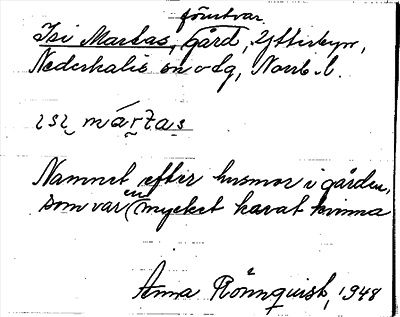 förutvar.
Isi Martas, gård, Ytterbyn,
Nederkalix sn o dg, Norrb. l.
ɪsɪ mártas
Namnet efter husmor i gården,
som var en mycket karat kvinna
Anna Rönnquist, 1948